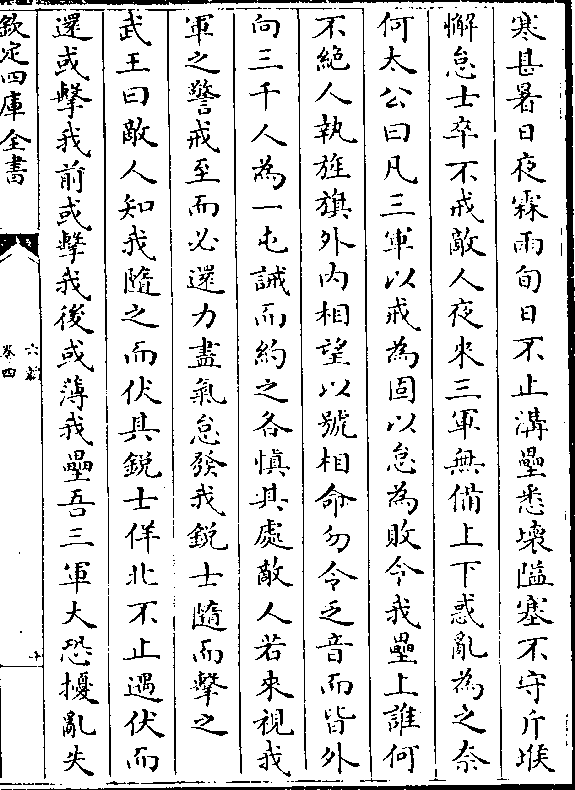 寒甚暑日夜霖雨旬日不止溝壘悉壞隘塞不守斥堠
懈怠士卒不戒敵人夜來三軍無備上下惑亂為之奈
何太公曰凡三軍以戒為固以怠為敗令我壘上誰何
不絶人執旌旗外内相望以號相命勿令乏音而皆外
向三千人為一屯誡而約之各慎其處敵人若來視我
軍之警戒至而必還力盡氣怠發我鋭士隨而擊之
武王曰敵人知我隨之而伏其鋭士佯北不止遇伏而
還或擊我前或擊我後或薄我壘吾三軍大恐擾亂失
欽定四庫全書
六韜
卷四
十